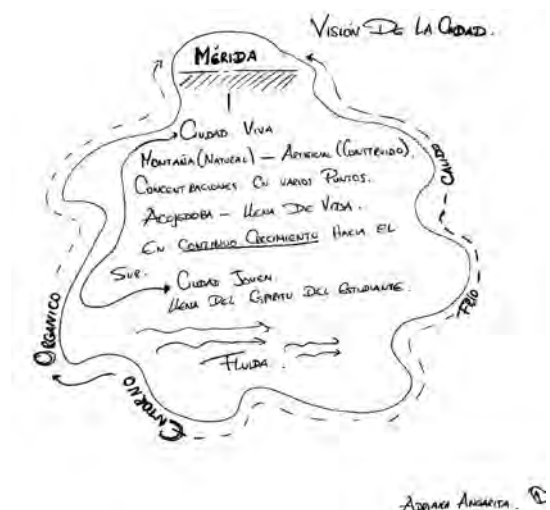 VISIÓN DE LA CIUDAD.
MÉRIDA
CIUDAD VIVA
MONTAÑA (NATURAL) — ARTIFICIAL (CONSTRUIDO).
CONCENTRACIONES EN VARIOS PUNTOS.
ACOJEDORA — LLENA DE VIDA.
EN CONTINUO CRECIMIENTO HACIA EL
SUR.
CIUDAD JOVEN.
LLENA DEL ESPIRITU DEL ESTUDIANTE.
FLUIDA.
ORGANICO
ENTORNO
FRIO
ADRIANA ANGARITA. 1